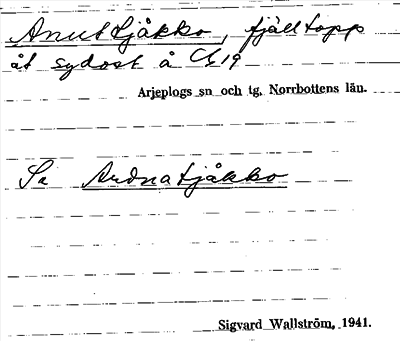 Anuttjåkko, fjälltopp
åt sydost å C19
Arjeplogs sn och tg, Norrbottens län.
Se Ardnatjåkko
Sigvard Wallström, 1941.